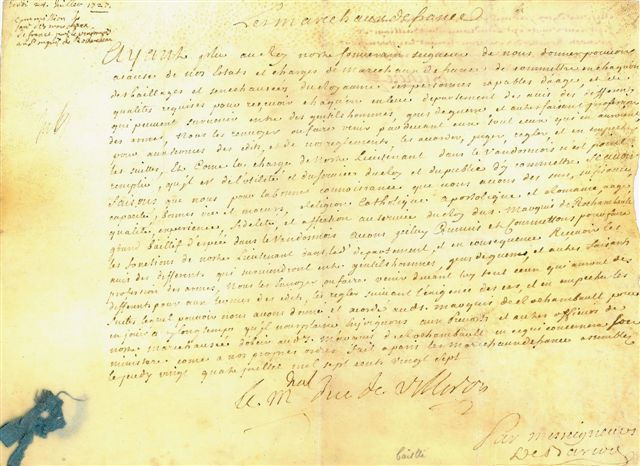 Jeudi 24 Juillet 1727.
Commission de
Les marechaux de france
Ayant plu au Roy nostre souverain seigneur de nous donner pouvoir
a cause de nos Estats et charges de Marechaux de france de commettre en chacun
des bailliages et senechaussées du royaume des personnes capables d'aage, et de
qualités requises pour recevoir chacun en leur departement des avis des differents
qui peuvent survenir entre des gentilshommes, gens de guerre, et autres faisant profession
des armes, Nous les renvoyer ou faire venir pardevant eux tout ceux qui en auroient
pour aux termes des edits, et de nos reglements, les accorder, juger, regler, et en empecher
les suittes, Et Come la charge de Nostre Lieutenant dans le Vandomois n'est point
remplie, qu'il est de l'utilité et du service du Roy et du public d'y commettre Scavoir
faisons que nous pour la bonne connoissance que nous avons des sens, suffisance
capacité, bonnes vie et moeurs, Religion Catholique apostolique, et Romaine, aage
qualité, experience, fidelité, et affection au service du Roy du s. Marquis de Rochambault
grand baillif d'epée dans le Vendomois Avons iceluy Commis et Commettons pour faire
les fonctions de nostre lieutenant dans led. departement, et en consequence Recevoir les
avis des differents qui surviendront entre gentilshommes, gens de guerre, et autres faisants
profession des armes, Nous les renvoyer ou faire venir devant luy tout ceux qui auront des
differents pour aux termes des edits, les regler suivant l'exigence des cas, et en empecher les
suites de ce luy pouvoir nous avons donné et accordé aud. s. marquis de Rochambault pour
en jouir a tous temps qu'il nous plaira enjoignons aux Prevosts et autres officiers de
nostre marechaussée d'obeir aud. s. Marquis de Rochambault en ce qui concernera son
ministere come a nos propres ordres, fait a paris les marechaux de france assemblés
le jeudy vingt quatre juillet mil sept cents vingt sept
le M.al Duc de Villeroy
Par messeigneurs
bailli